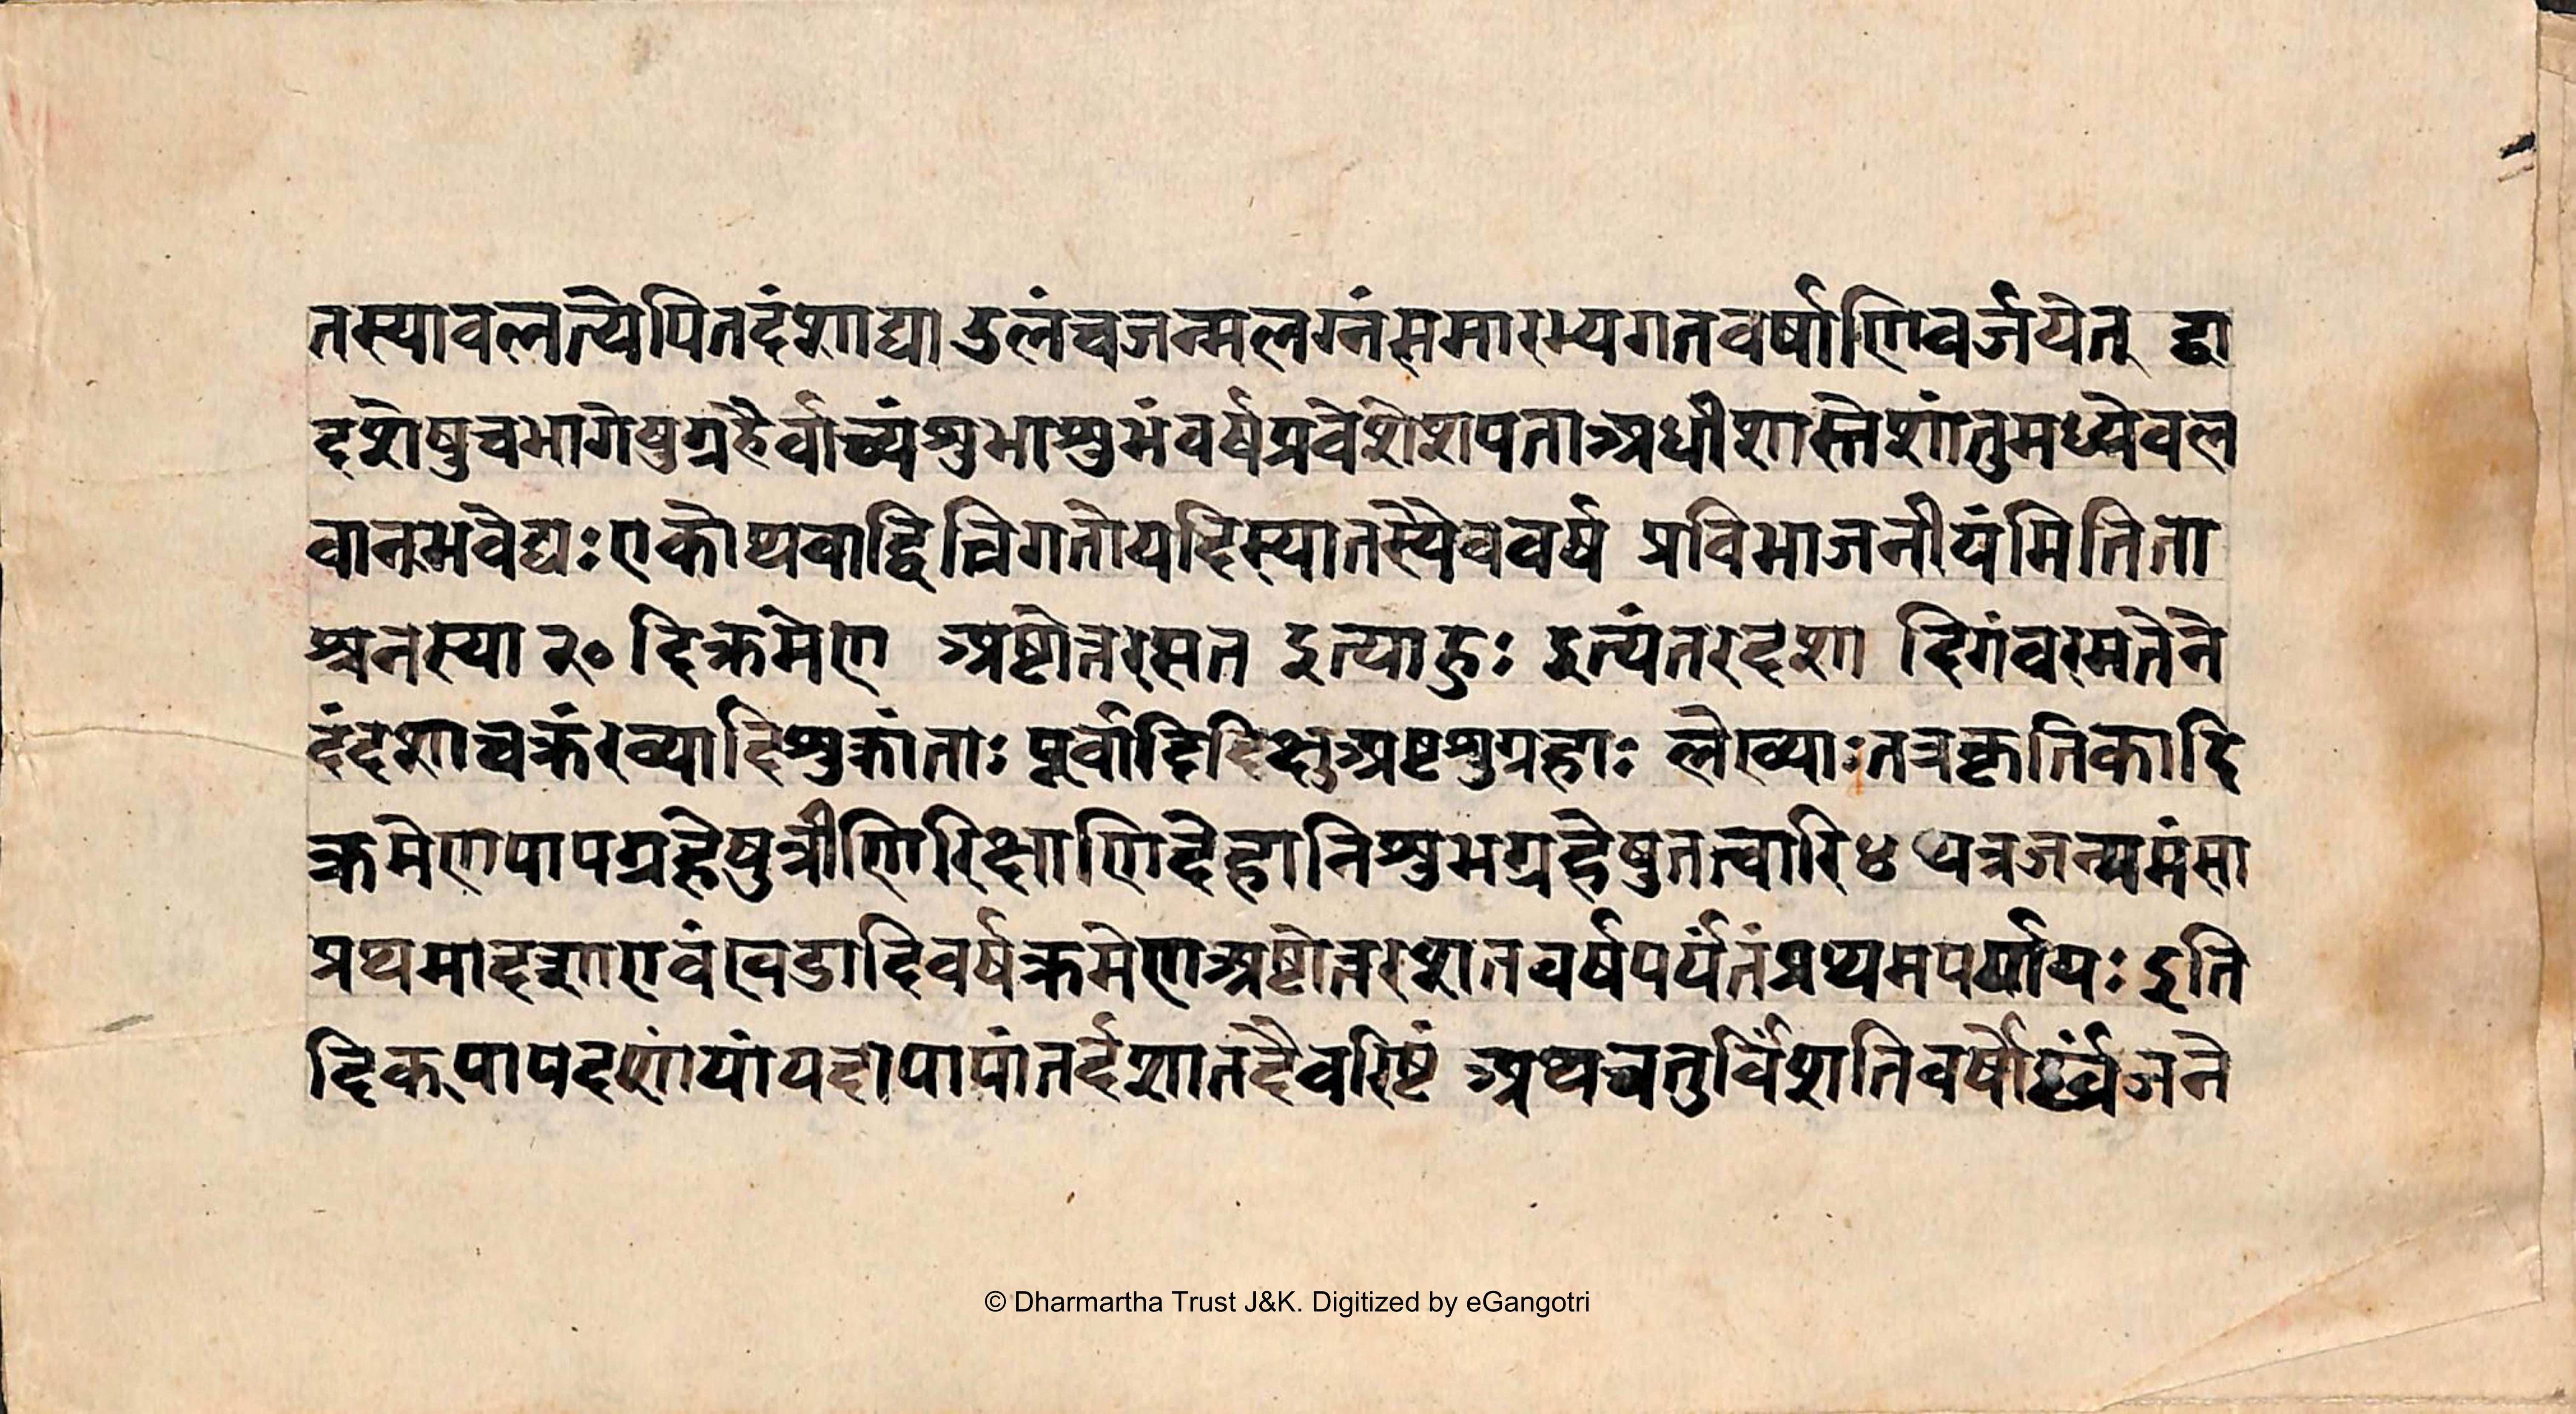 तस्यावलत्येपितदंशाद्या डलंच्चजन्मलग्नंसमारभ्यगतवर्षाणिवर्जयेत् द्वा
दशेषुचभागेषुग्रहैर्वाच्यंशुभाशुभंवर्षप्रवेशेशपताअधीशास्तेशांतुमध्येवल
वान्भवेद्यः एकोथवाद्वित्रिगतोयदिस्यातस्यैववर्ष प्रविभाजनीयंमितिता
श्चनस्या २० दिक्रमेण अष्टोत्तरसत इत्याहुः इत्यंतरदशा दिगंवरमतेने
दंदशाचक्रंरव्यादिशुक्रांताः पूर्वादिदिक्षुअष्टशुग्रहाः लेख्याःतत्रकृतिकादि
क्रमेणपापग्रहेषुत्रीणिरिक्षाणिदेहानिशुभग्रहेषुतत्वारि४ यत्रजन्मभंसा
प्रथमादशाएवंखेडादिवर्षक्रमेणअष्टोत्तरशतवर्षपर्यंतंप्रथमपर्यायः इति
दिक्पापदशांयांयदापापांतर्दशातदैवरिष्टं अथचतुर्विंशतिवर्षोर्ध्वंजने
© Dharmartha Trust J&K. Digitized by eGangotri